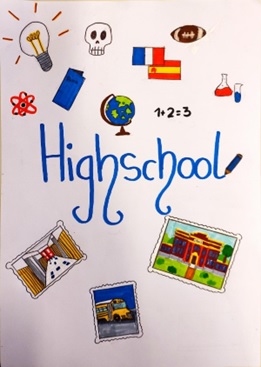 1+2=3
Highschool